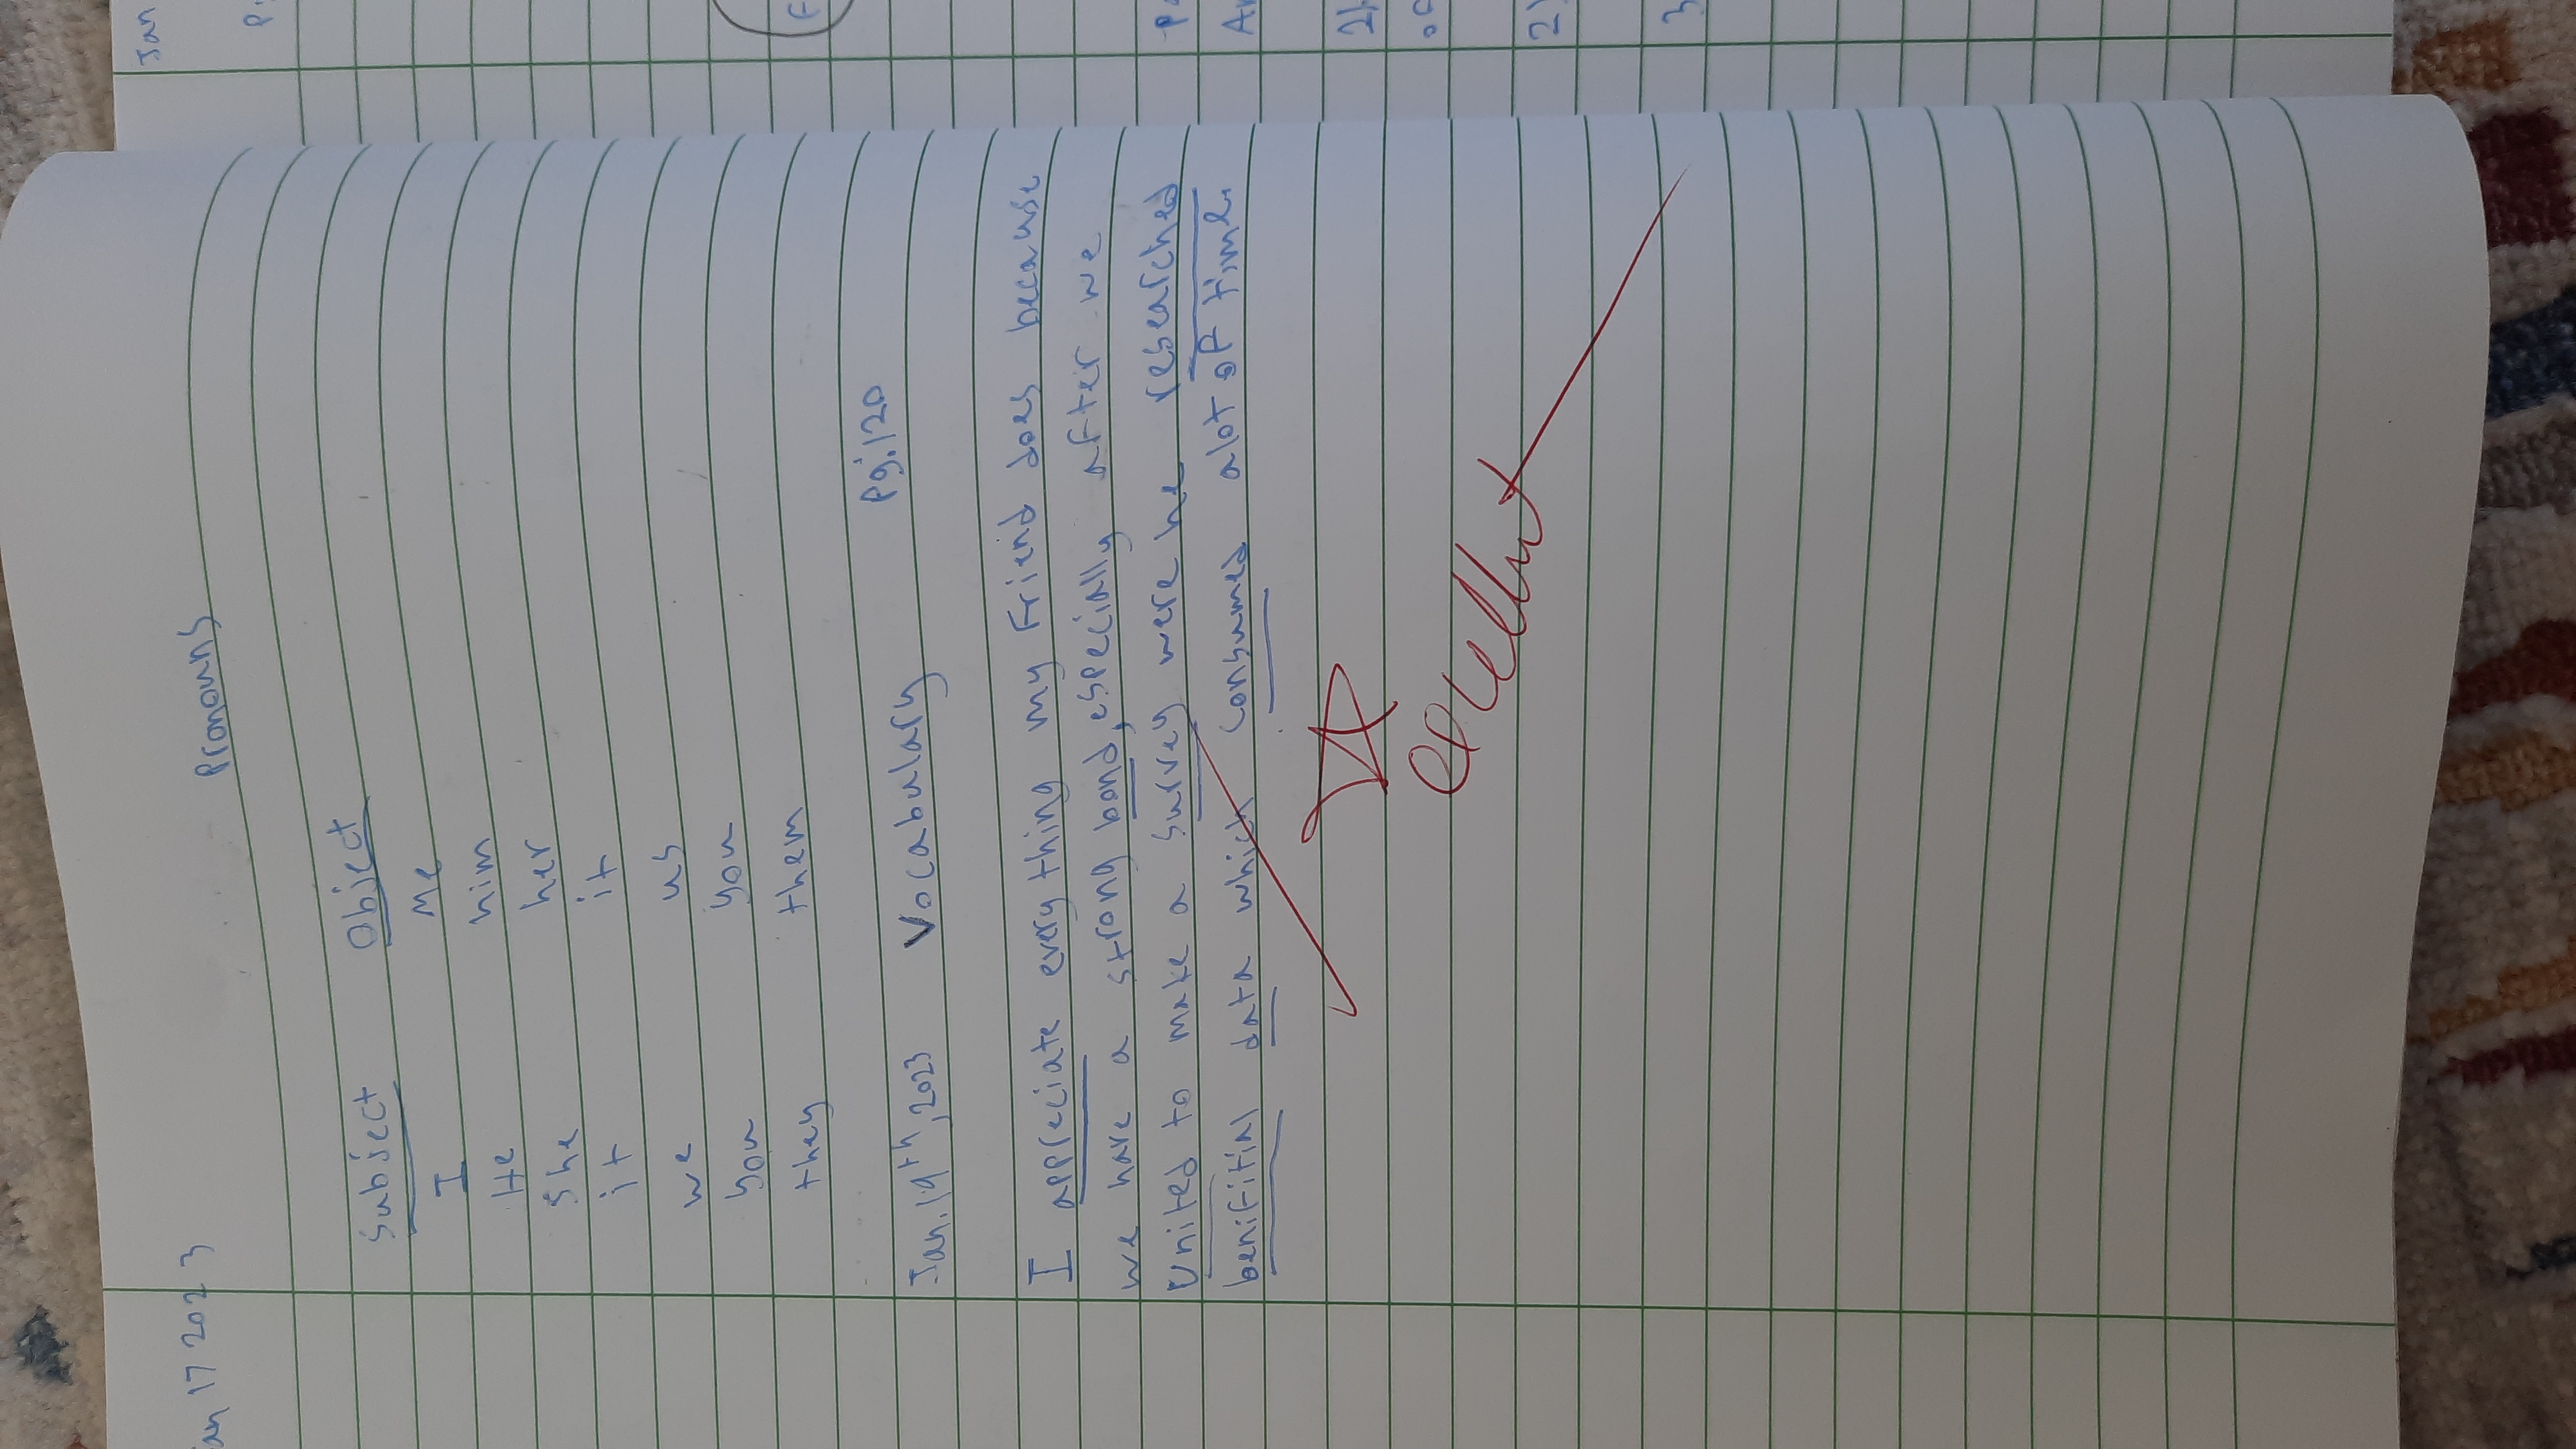 an 17 2023
Pronouns
Subject Object
I Me
He him
She her
it it
we us
you you
they them
Jan. 19th, 2023 Vocabulary Pg: 120
I appreciate everything my Friend does because
we have a strong bond, especially after we
United to make a survey were he researched
benifitial data which consumed alot of time.
excellent
Jan
P.
F
P
A
21
of
2)
3